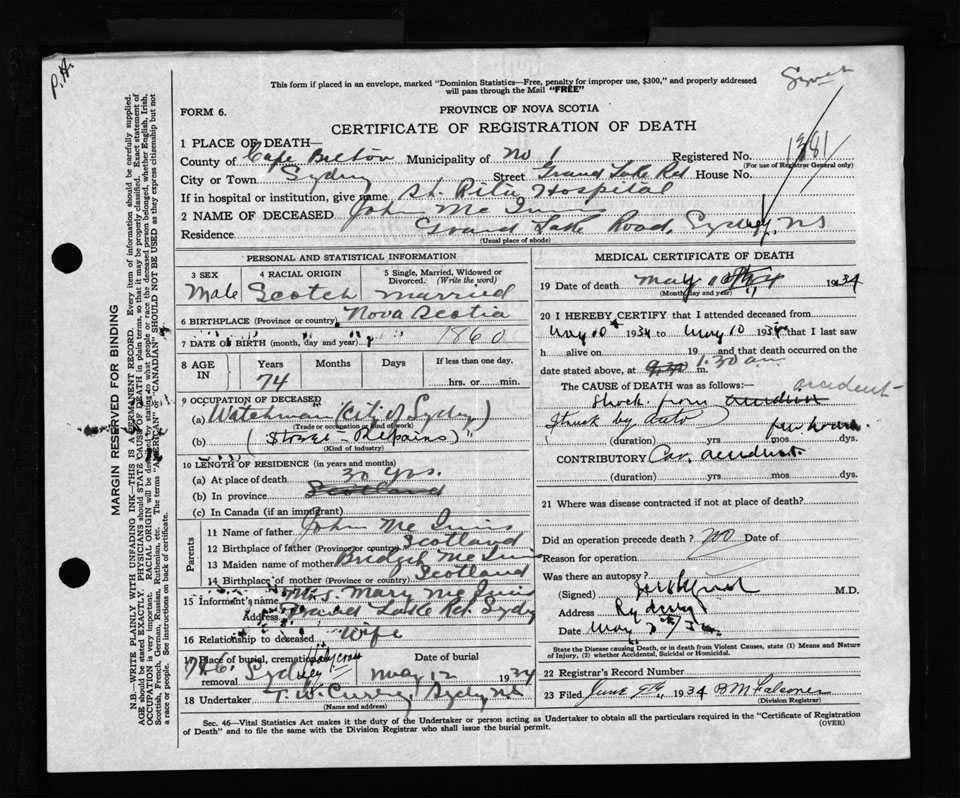 P.H.
This form if placed in an envelope, marked "Dominion Statistics—Free, penalty for improper use, $300," and properly addressed
will pass through the Mail "FREE"
FORM 6.
PROVINCE OF NOVA SCOTIA
CERTIFICATE OF REGISTRATION OF DEATH
1 PLACE OF DEATH—
County of Cape Breton Municipality of No 1 Registered No. 1381
(For use of Registrar General only)
City or Town Sydney Street Grand Lake Rd House No.
If in hospital or institution, give name St. Rita Hospital
2 NAME OF DECEASED John Mc
Residence Grand Lake Road, Sydney, NS
(Usual place of abode)
PERSONAL AND STATISTICAL INFORMATION
3 SEX 4 RACIAL ORIGIN 5 Single, Married, Widowed or
Divorced. (Write the word)
Male Scotch Married
6 BIRTHPLACE (Province or country) Nova Scotia
7 DATE OF BIRTH (month, day and year) 1860
8 AGE IN Years Months Days If less than one day,
74 hrs. or min.
9 OCCUPATION OF DECEASED
(a) Watchman (City of Sydney)
(Trade or occupation or kind of work)
(b)
(Kind of industry)
10 LENGTH OF RESIDENCE (in years and months)
(a) At place of death 30 yrs.
(b) In province Scotland
(c) In Canada (if an immigrant)
Parents
11 Name of father John Mc
12 Birthplace of father (Province or country) Scotland
13 Maiden name of mother Bridget Mc
14 Birthplace of mother (Province or country) Scotland
15 Informant's name Mrs. Mary Mc
Address Grand Lake Rd. Sydney
16 Relationship to deceased Wife
17 Place of burial, cremation or Date of burial
removal Sydney Holy Cross May 12 1934
18 Undertaker T. W. Curry, Sydney NS
(Name and address)
MEDICAL CERTIFICATE OF DEATH
19 Date of death May 1934
(Month, day and year)
20 I HEREBY CERTIFY that I attended deceased from
May 10 1934 to May 10 1934 that I last saw
h alive on 19 and that death occurred on the
date stated above, at 9.30 m. 1.30 am
The CAUSE of DEATH was as follows:— accident
Shock from
Struck by auto few hours
(duration) yrs mos dys.
CONTRIBUTORY Car accident
(duration) yrs mos dys.
21 Where was disease contracted if not at place of death?
Did an operation precede death? No Date of
Reason for operation
Was there an autopsy?
(Signed) M.D.
Address Sydney
Date May
State the Disease causing Death, or in death from Violent Causes, state (1) Means and Nature
of Injury, (2) whether Accidental, Suicidal or Homicidal.
22 Registrar's Record Number
23 Filed June 1934 B M Falconer
(Division Registrar)
Sec. 46—Vital Statistics Act makes it the duty of the Undertaker or person acting as Undertaker to obtain all the particulars required in the "Certificate of Registration
of Death" and to file the same with the Division Registrar who shall issue the burial permit. (OVER)
MARGIN RESERVED FOR BINDING
N.B.—WRITE PLAINLY WITH UNFADING INK—THIS IS A PERMANENT RECORD. Every item of information should be carefully supplied.
AGE should be stated EXACTLY. PHYSICIANS should STATE CAUSE OF DEATH in plain terms, so that it may be properly classified. Exact statement of
OCCUPATION is very important. RACIAL ORIGIN will be denoted by stating to what people or race the deceased person belonged, whether English, Irish,
Scottish, French, German, Russian, Ruthenian, etc. The terms "AMERICAN" or "CANADIAN" SHOULD NOT BE USED as they express citizenship but not
a race or people. See instructions on back of certificate.